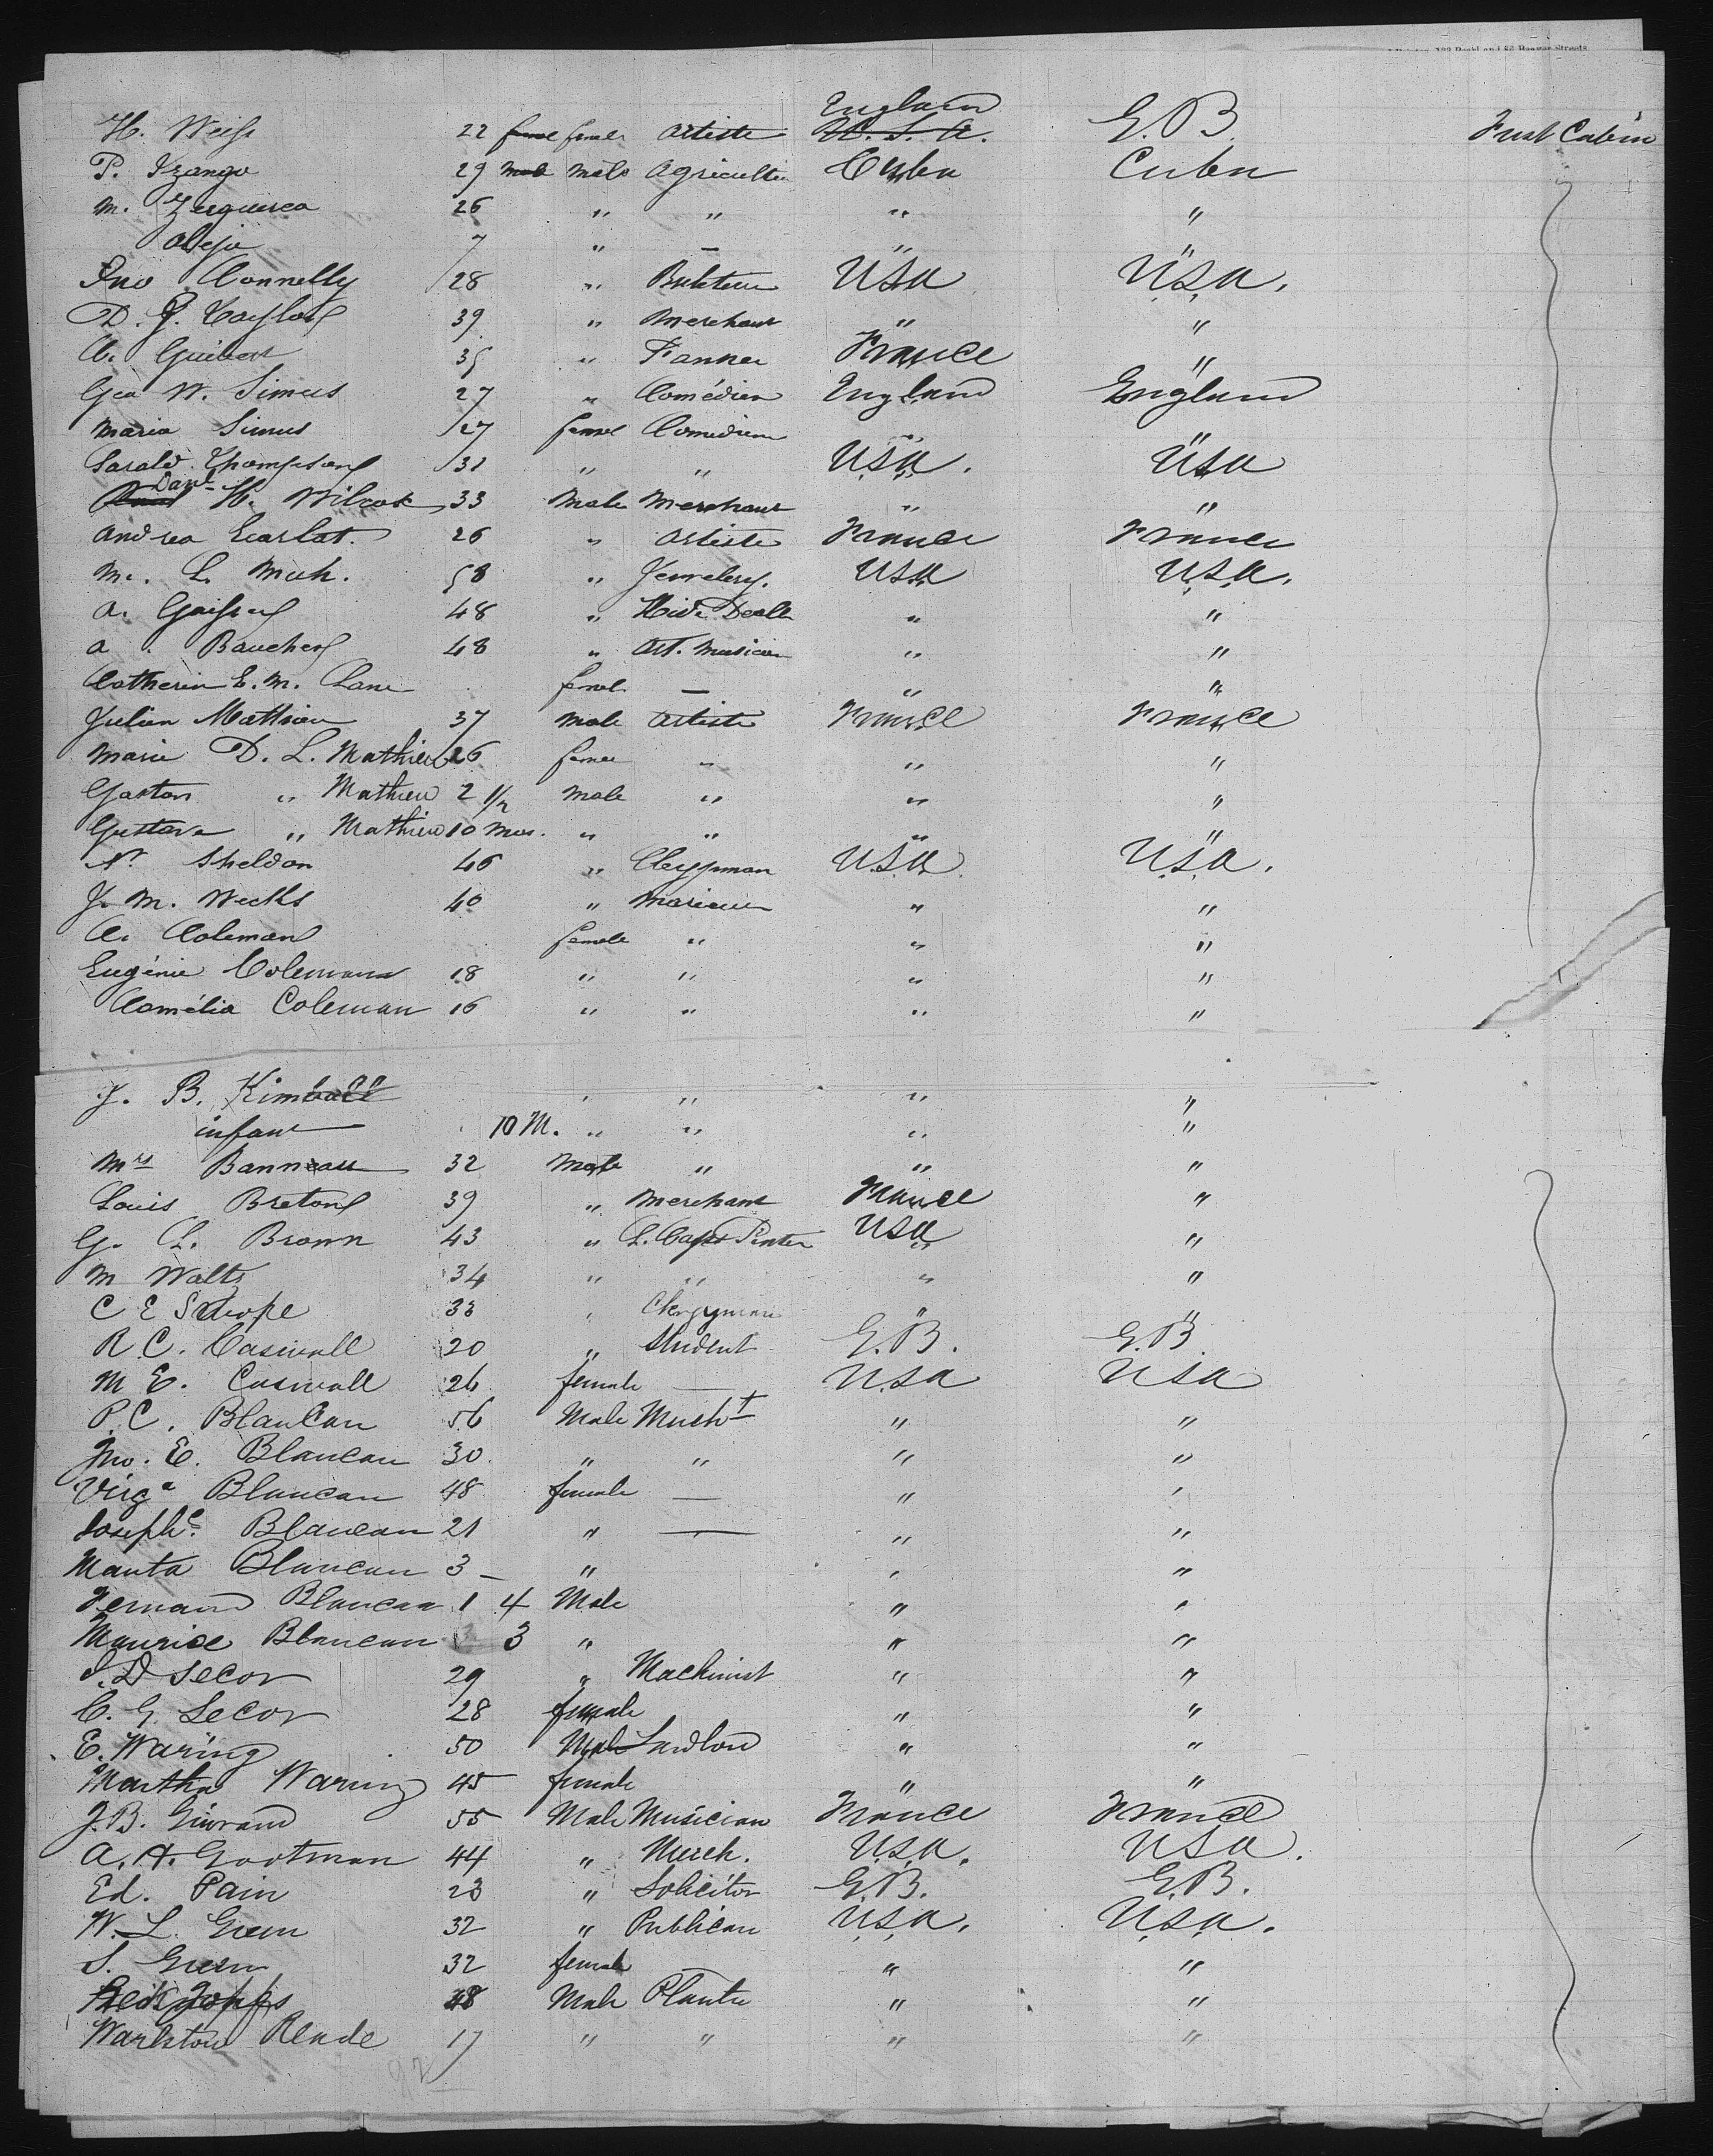 England
H. Weiss 22 femel artiste U.S.A. G.B. First Cabin
P. Yzango 29 male male Agriculter Cuba Cuba
M. Zerguerea 26 " " " "
Alejo 7 " — " "
Jno Connelly 28 " USA U.S.A.
D. J. Taylor 39 " Merchant " "
A. Guibert 35 " France "
Geo W. Simus 27 " Comédien England England
Maria Simus 27 femel Comedien " "
Sarah Thompson 31 " " USA. USA
Danl H. Wilcok 33 Male Merchant " "
Andrea Escarlat. 26 " artiste France France
M. L. Muh. 58 " Jewelery. USA U.S.A.
A. 48 " Hide Deale " "
A. Baucher 48 " Art. Musicien " "
Catherin E. M. Lane femel — " "
Julien Mathieu 37 Male artiste France France
Marie D. L. Mathieu 26 femel " " "
Gaston " Mathieu 2 1/2 Male " " "
Gustave " Mathieu 10 mos. " " " "
N. Sheldon 46 " Clergyman U.S.A. U.S.A.
J. M. Weeks 40 " " "
A. Coleman female " " "
Eugénie Coleman 18 " " " "
Camélia Coleman 16 " " " "
J. B. Kimball " " "
infant 10 M. " " " "
Mrs Banneau 32 Male " " "
Louis Breton 39 " Merchant France "
G. L. Brown 43 " USA "
M Waltz 34 " " " "
C E 33 " Clergyman " "
R. C. Caswall 20 " Student G.B. G.B.
M E. Caswall 26 female — USA USA
P. C. Blancan 56 Male Mercht " "
Jno. E. Blancan 30 " " " "
Virga Blancan 48 female — " "
Josephe Blancan 21 " — " "
Manta Blancan 3 — " " "
Fernand Blancan 1 4 Male " "
Maurice Blancan 3 " " "
S. D Secor 29 " Machinist " "
C. G. Secor 28 female " "
E. Waring 50 Male Landlord " "
Martha Waring 45 female " "
J. B. Guirand 55 Male Musician France France
A. H. Gootman 44 " Merch. U.S.A. USA.
Ed. Pain 23 " Solicitor G.B. G.B.
W. L. Green 32 " Publican U.S.A. U.S.A.
S. Green 32 female — " "
48 Male Planter " "
Warlstow Reade 17 " " " "
92